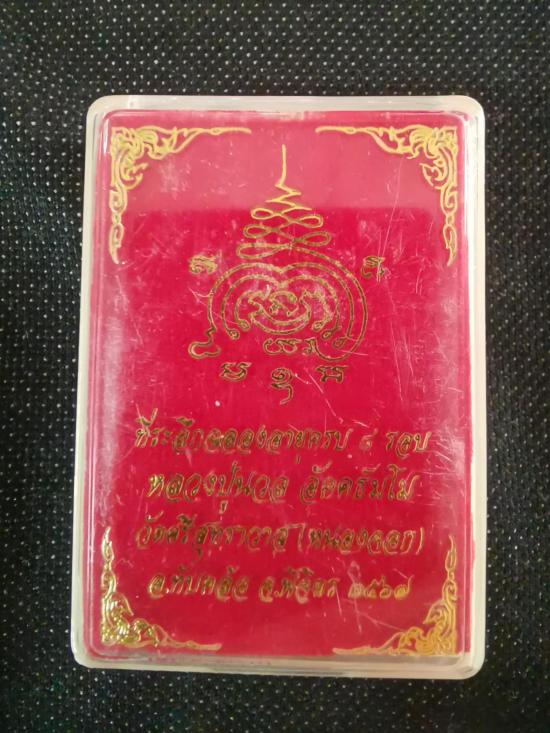 ที่ระลึกฉลองอายุครบ ๘ รอบ
หลวงปู่นวล
วัดศรีสุทธาวาส (หนองจอก)
อ.ทับคล้อ จ.พิจิตร ๒๕๖๗